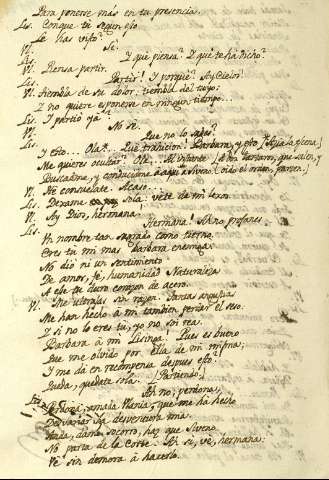 Para ponerse más en tu presencia.
Lis. Conque tu segun eso
Le has visto?
Vl. Sí.
Lis. Y qué piensa? Y qué te ha dicho?
Vl. Piensa partir.
Lis. Partir! Y porqué? Ay cielos!
Vl. Tiembla de su dolor: tiembla del tuyo:
Y no quiere esponerse en ningun tiempo...
Lis. Y partió ya?
Vl. No sé.
Lis. Que no lo sabes?
Y esto... Ola... Qué traicion! Barbara, y esto
Me quieres ocultar. Ole... Al instante
Buscadme, y conducidme aquí a Siveno.
Vl. Consuelate. Acaso...
Lis. Dexame Nila: vete de mi lexos.
Vl. Ay Dios, hermana!
Lis. Hermana! No profanes
Un nombre tan sagrado como tierno.
Eres tu mi mas barbara enemiga:
No dió ni un sentimiento
De amor, fe, humanidad Naturaleza
A ese tu duro corazon de acero.
Vl. Me ultrajas sin razon. Tantas angustias
Me han hecho a mi tambien perder el seso.
Y si no lo eres tu, yo no sin rea.
Barbara á mi Lisinga! Pues es bueno
Que me olvido por ella de mi misma;
Y me da en recompensa despues esto!
Queda, quedate sola. (Partiendo)
Lis. Ah no; perdona,
Perdona, amada Nania, que me ha hecho
Desvariar la desventura mia.
Anda, dame socorro, haz que Siveno
No parta de la Corte. Ah si, vé, hermana:
Vé sin demora á hacerlo.